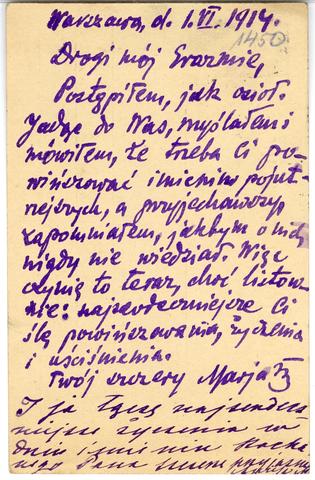 Warszawa, d. 1.VI.1914.
1450
Drogi mój Erazmie,
Postąpiłem, jak osioł.
Jadąc do Was, myślałem i
mówiłem, że trzeba Ci po-
winszować imienin pojut-
rzejszych, a przyjechawszy,
zapomniałem, jakbym o nich
nigdy nie wiedział. Więc
czynię to teraz, choć listow-
nie: najserdeczniejsze Ci
ślę powinszowania, życzenia
i uściśnienia.
Twój szczery Marjan
I ja łączę najserdecz-
niejsze życzenia w
dniu imienin Kocha-
nego Pana